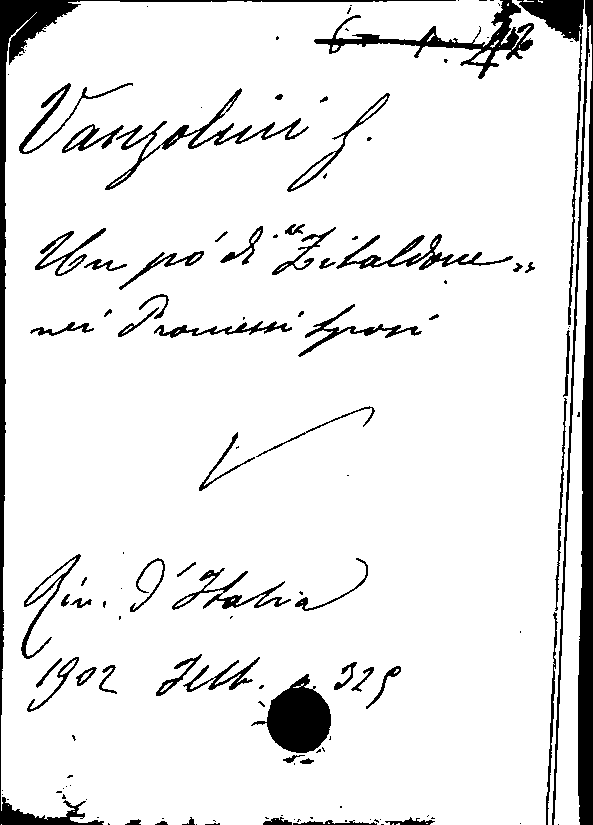 Vanzolini G.
Un pó di "Zibaldone"
nei Promessi Sposi
Riv. d'Italia
1902 Febb. p. 329